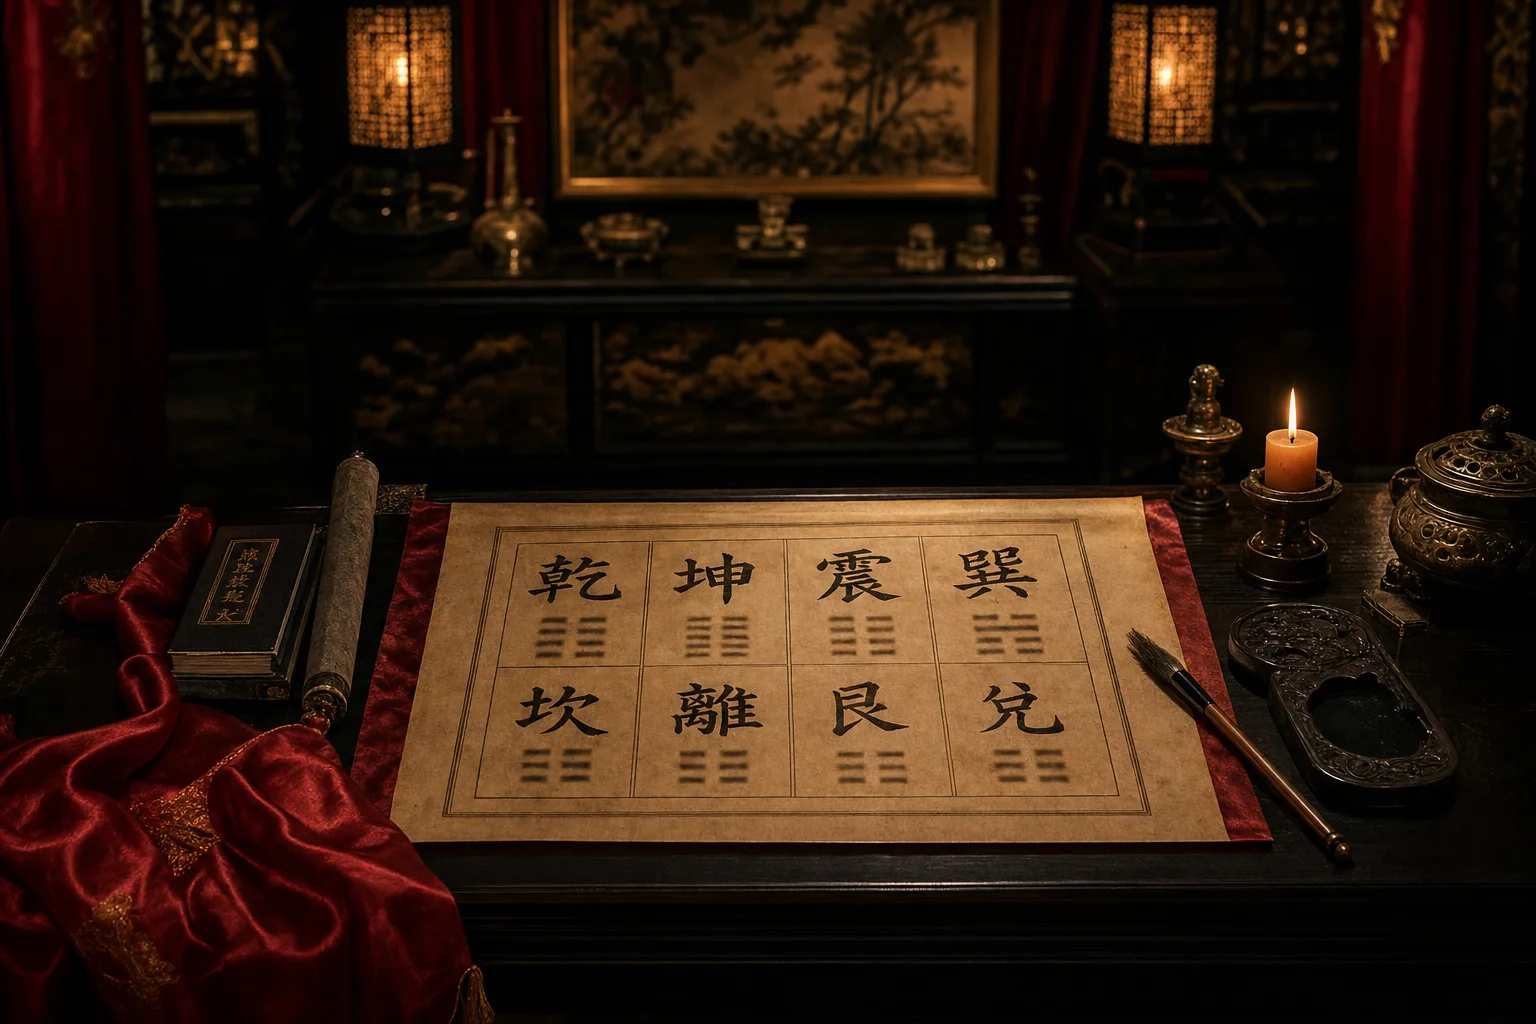 乾 坤 震 巽
坎 離 艮 兌